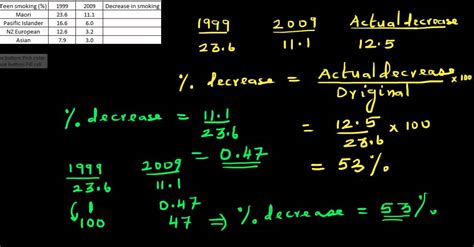 Teen smoking (%) 1999 2009 Decrease in smoking
Maori 23.6 11.1
Pacific Islander 16.6 6.0
NZ European 12.6 3.2
Asian 7.9 3.0
1999 2009 Actual decrease
23.6 11.1 12.5
% decrease = Actual decrease x 100
Original
% decrease = 11.1
23.6
= 12.5 x 100
23.6
= 0.47
= 53%
1999 2009
23.6 11.1
1 0.47
100 47 ⇒ % decrease = 53%